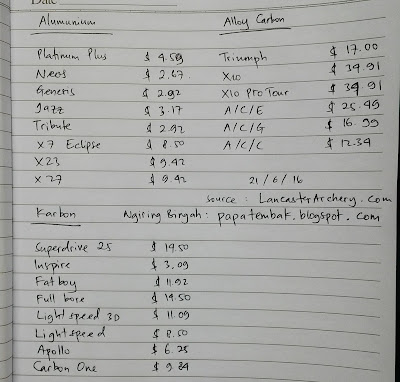 Date
Alumunium
Platinum Plus $ 4.59
Neos $ 2.67
Genesis $ 2.92
Jazz $ 3.17
Tribute $ 2.92
X7 Eclipse $ 8.50
X23 $ 9.42
X 27 $ 9.42
Alloy Carbon
Triumph $ 17.00
X10 $ 34.91
X10 Pro Tour $ 34.91
A/C/E $ 25.49
A/C/G $ 16.99
A/C/C $ 12.34
21 / 6 / 16
source : LancasterArchery.com
Ngiring Binyah : papatembak.blogspot.com
Karbon
Superdrive 25 $ 19.50
Inspire $ 3.09
Fat boy $ 11.92
Full bore $ 19.50
Light speed 3D $ 11.09
Light speed $ 8.50
Apollo $ 6.25
Carbon One $ 9.34